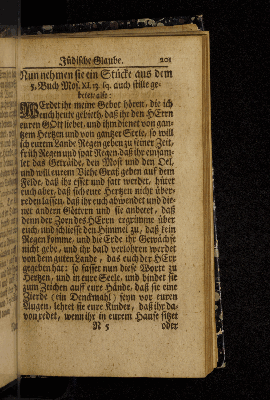 Jüdische Glaube. 201
Nun nehmen sie ein Stücke aus dem
5. Buch Mos. XI. 13. sq. auch stille ge-
betet, also:
WErdet ihr meine Gebot hören, die ich
euch heute gebieth, daß ihr den HErrn
euren GOtt liebet, und ihm dienet von gan-
tzen Hertzen und von gantzer Seele, so will
ich eurem Lande Regen geben zu seiner Zeit,
früh Regen und spat Regen, daß ihr einsam-
let das Getraide, den Most und den Oel,
und will eurem Viehe Graß geben auf dem
Felde, daß ihr esset und satt werdet, hütet
euch aber, daß sich euer Hertzen nicht über-
reden lassen, daß ihr euch abwendet und die-
net andern Göttern und sie anbetet, daß
denn der Zorn des HErrn ergrimme über
euch, und schliesse den Himmel zu, daß kein
Regen komme, und die Erde ihr Gewächs
nicht gebe, und ihr bald verlohren werdet
von dem guten Lande, das euch der HErr
gegeben hat: so fasset nun diese Wort zu
Hertzen, und in eure Seele, und bindet sie
zum Zeichen auf eure Hände, daß sie eine
Zierde (ein Denckmahl) seyn vor euren
Augen, lehret sie eure Kinder, daß ihr da-
von redet, wenn ihr in eurem Hause sitzet
N 5 oder